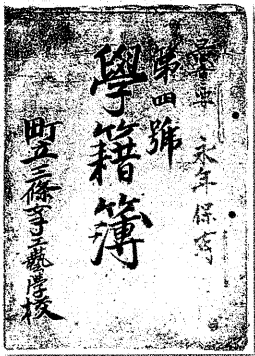 永年保存
第四號
學籍簿
町立三條女子工藝学校